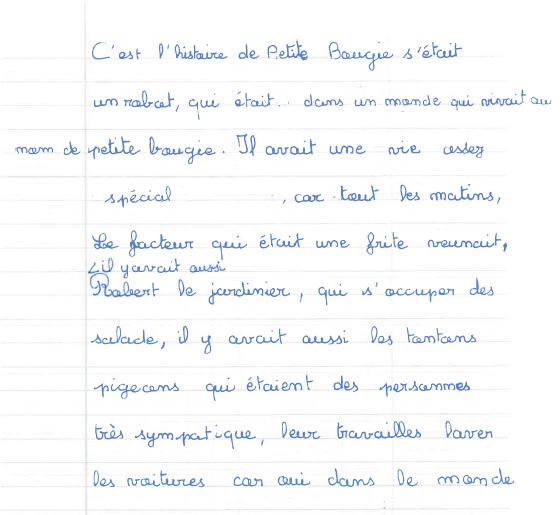 C'est l'histoire de Petite Bougie s'était
un robot, qui était.. dans un monde qui vivait au
nom de petite bougie. Il avait une vie assez
spécial , car tout les matins,
Le facteur qui était une frite veunait,
<il y avait aussi
Robert le jardinier, qui s'occuper des
salade, il y avait aussi les tontons
pigeons qui étaient des personnes
très sympatique, leur travailles laver
les voitures car oui dans le monde